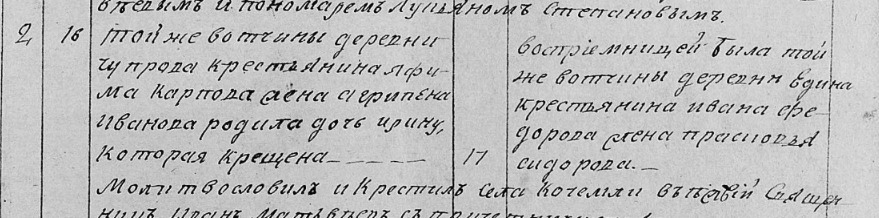 вѣевымъ и пономаремъ Лукьяномъ Степановымъ.
2 16 Той же вотчины деревни
чупрова крестьянина яфи-
ма карпова жена агрипена
Иванова родила дочь ирину,
которая крещена — — — — — 17
восприемницей была той
же вотчины деревни вдина
крестьянина ивана фе-
дорова жена прасковья
сидорова. —
Молитвословилъ и крестилъ села кочемли
Иванъ Матвѣевъ съ